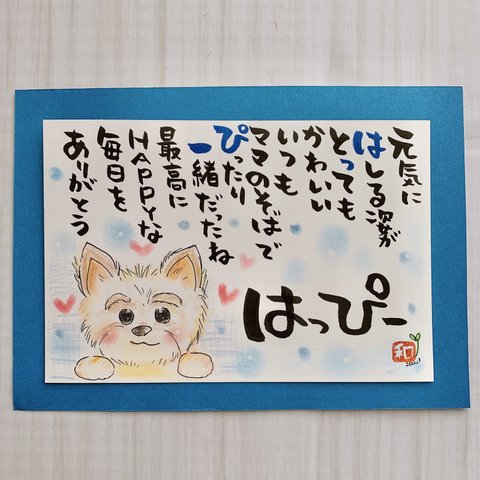 元気に
はしる姿が
とっても
かわいい
いつも
ママのそばで
ぴったり
一緒だったね
最高に
HAPPYな
毎日を
ありがとう
はっぴー
和